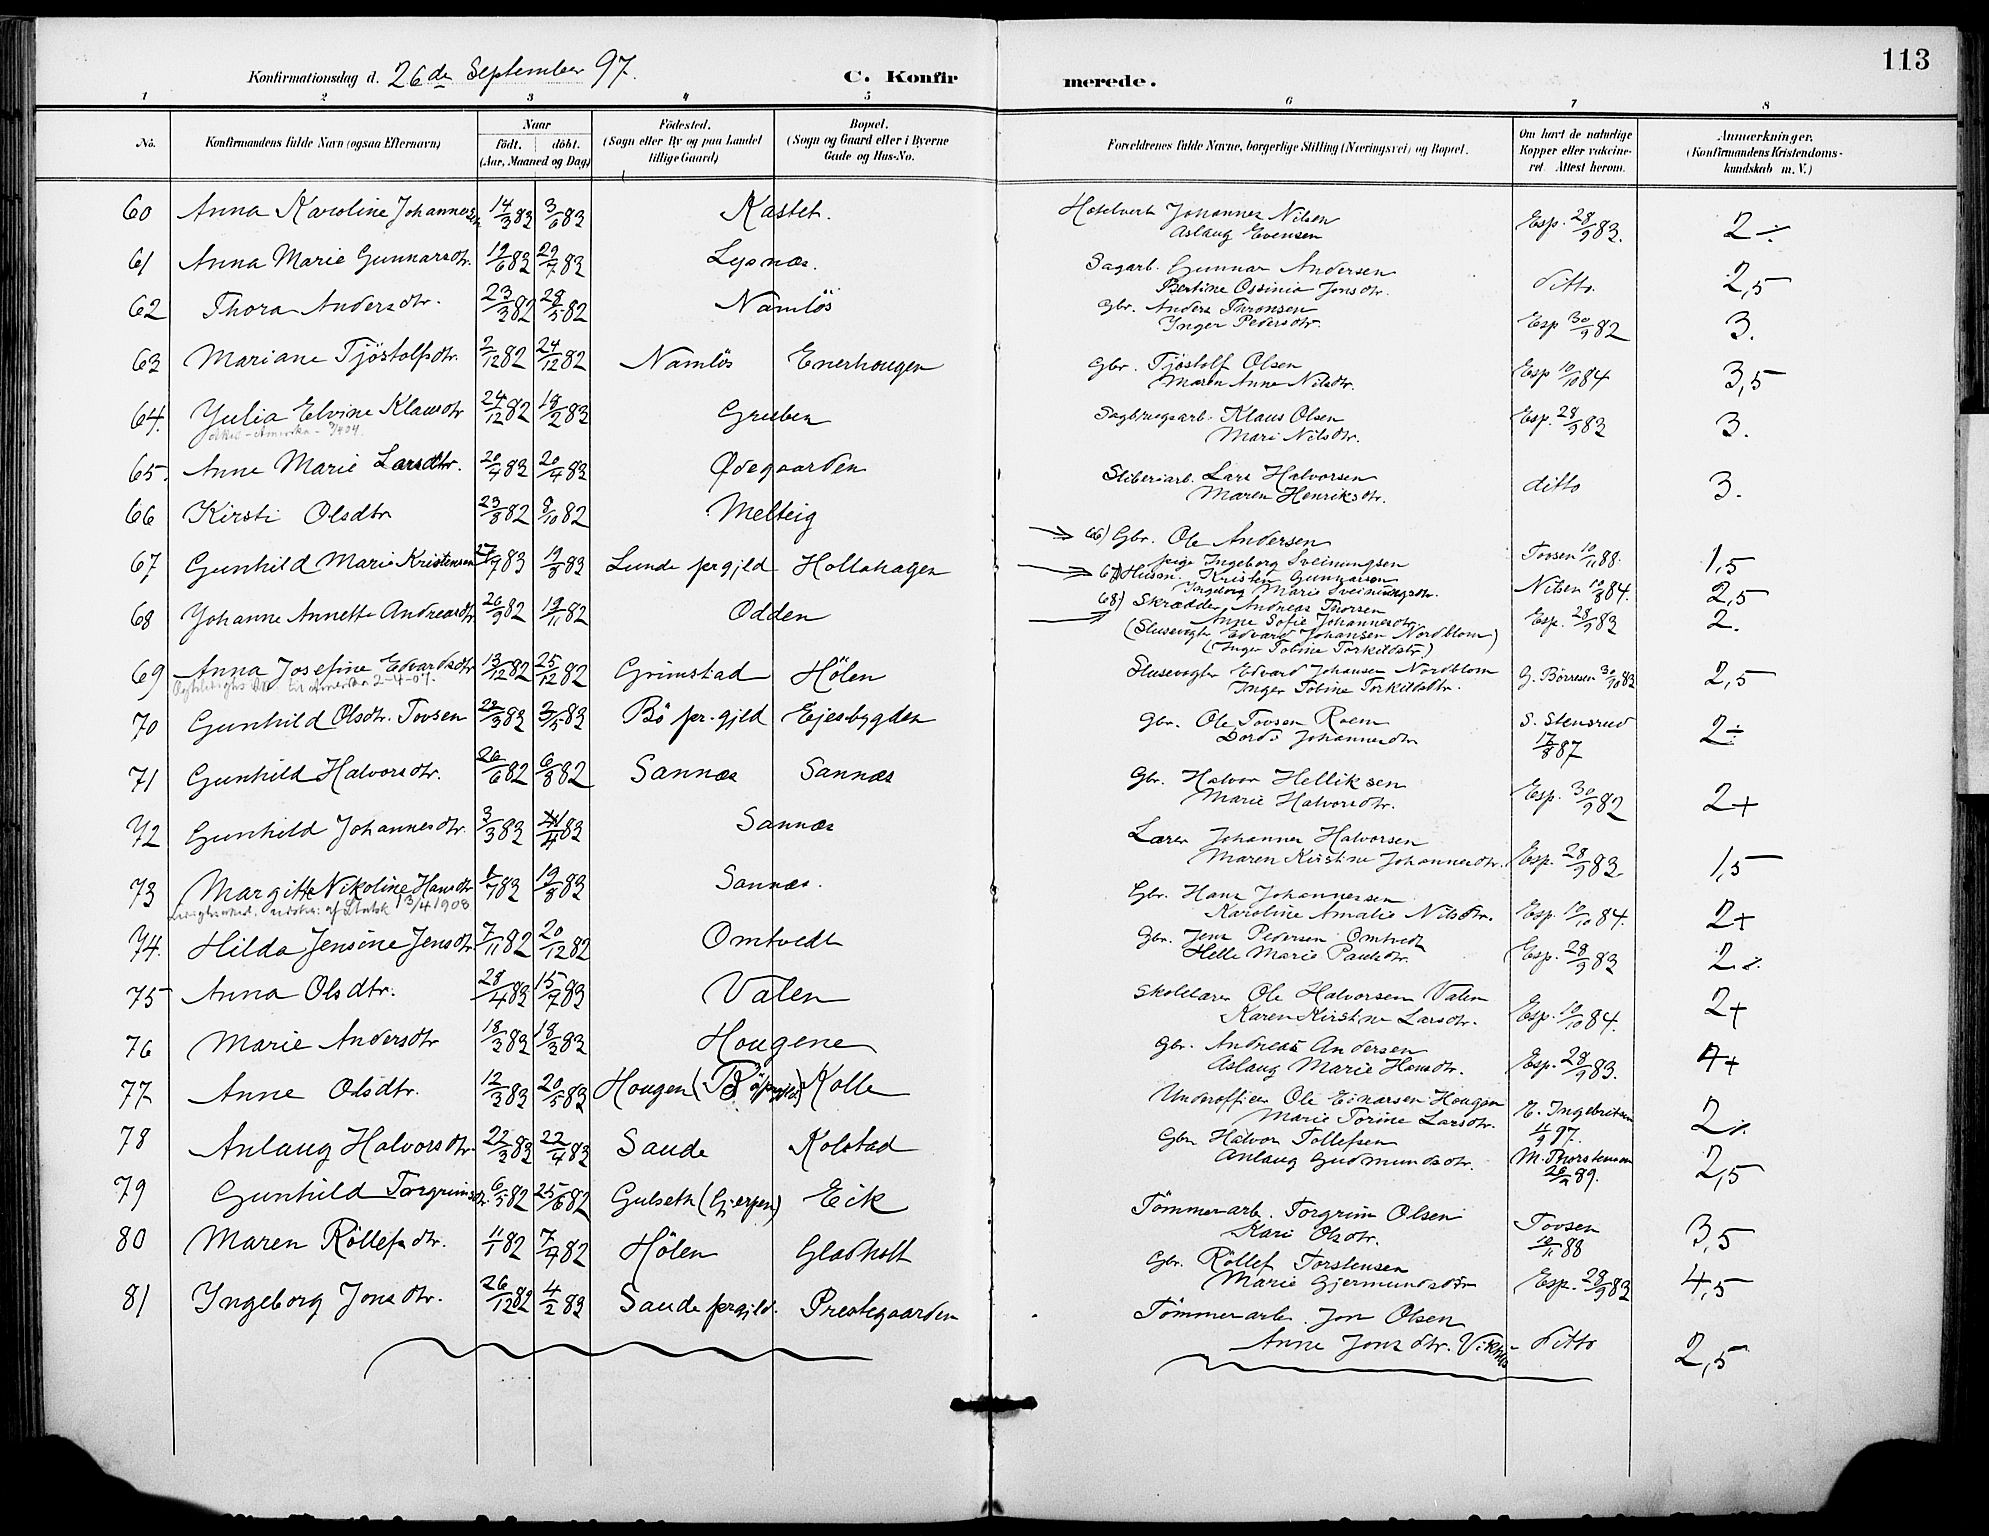 113
Konfirmationsdag d. 26de September 97.
C. Konfirmerede.
1 2 3 4 5 6 7 8
No. Konfirmandens fulde Navn (ogsaa Efternavn) Naar født. døbt. (Aar, Maaned og Dag) Fødested. (Sogn eller By og paa Landet tillige Gaard) Bopæl. (Sogn og Gaard eller i Byerne Gade og Hus-No. Forældrenes fulde Navne, borgerlige Stilling (Næringsvei) og Bopæl. Om havt de naturlige Kopper eller vakcineret. Attest herom. Anmærkninger. (Konfirmandens Kristendomskundskab m. V.)
60 Anna Karoline Johannesen 14/3 83 3/6 83 Kastet. Hotelvert Johannes Nilsen Esp. 28/9 83. 2 ÷
Aslaug Evensen
61 Anna Marie Gunnarsdtr. 19/6 83 29/7 83 Lysnæs. Sagarb. Gunnar Andersen ditto. 2,5
Bertine Ossinia Jonsdtr.
62 Thora Andersdtr. 23/3 82 28/5 82 Namløs Gbr. Anders Thronsen Esp 30/9 82 3.
Inger Pedersdtr.
63 Mariane Tjöstolfsdtr. 2/12 82 24/12 82 Namlös Enerhougen Gbr. Tjöstolf Olsen Esp 10/10 84 3,5
Maren Anne Nilsdtr.
64. Julia Elvine Klausdtr 24/12 82 18/2 83 Gruben Sagbrugsarb. Klaus Olsen Esp. 28/9 83 3.
Mari Nilsdtr.
65. Anne Marie Larsdtr. 20/4 83 20/4 83 Ødegaarden Sliberiarb. Lars Halvorsen ditto 3.
Maren Henriksdtr.
66 Kirsti Olsdtr 23/8 82 8/10 82 Melteig 66) Gbr. Ole Andersen Tovsen 10/11 88. 1,5
pige Ingeborg Sveinungsen
67 Gunhild Marie Kristensen 27/7 83 19/8 83 Lunde prgjld Hollahagen 67) Husm. Kristen Gunnarsen Nilsen 10/8 84. 2,5
Ingeborg Marie Sveinungsdtr.
68 Johanne Annette Andreasdtr 26/9 82 19/11 82 Odden 68) Skrædder Andreas Thorsen Esp. 28/9 83 2.
Anne Sofie Johannesdtr
(Slusevogter Edvard Johansen Nordblom)
(Inger Tobine Torkildsdtr.)
69 Anna Josefine Edvardsdtr 13/12 82 25/12 82 Grimstad Hölen Slusevogter Edvard Johansen Nordblom G. Börresen 30/10 83 2,5
til Amerika 2-4-07. Inger Tobine Torkildsdtr.
70 Gunhild Olsdtr. Tovsen 22/3 83 3/5 83 Bö pr.gjld Ejesbygden Gbr. Ole Tovsen Roem S. Stensrud 17/8 87 2÷
Dordi Johannesdtr
71 Gunhild Halvorsdtr. 26/6 82 6/8 82 Sannæs Sannæs Gbr. Halvor Helliksen Esp. 30/9 82 2+
Marie Halvorsdtr.
72 Gunhild Johannesdtr. 3/3 83 /4 83 Sannæs Lærer Johannes Halvorsen Esp. 28/9 83. 1,5
Maren Kirstine Johannesdtr.
73 Margitte Nikoline Hansdtr /7 83 19/8 83 Sannæs. Gbr. Hans Johannessen Esp. 10/10 84. 2+
13/4 1908 Karoline Amalie Nilsdtr.
74. Hilda Jensine Jensdtr 7/11 82 20/12 82 Omtvedt Gbr. Jens Pedersen Omtvedt Esp. 28/9 83 2
Helle Marie Paulsdtr.
75 Anna Olsdtr. 28/4 83 15/7 83 Valen Skolelærer Ole Halvorsen Valen Esp. 10/10 84. 2+
Karen Kirstine Larsdtr.
76 Marie Andersdtr 18/3 83 18/3 83 Hougene Gbr. Andreas Andersen Esp. 28/9 83. 4+
Aslaug Marie Hansdtr.
77 Anne Olsdtr. 12/3 83 20/5 83 Hougen (Bö prgjld) Kolle Underofficer Ole Einarsen Hougen E. Ingebritsen 11/9 97. 2
Marie Torine Larsdtr.
78 Anlaug Halvorsdtr 22/3 83 22/4 83 Saude Kolstad Gbr. Halvor Tollefsen M. Thorstensen 89. 2,5
Anlaug Gudmundsdtr.
79 Gunhild Torgrimsdtr. 6/5 82 25/6 82 Gulseth (Gjerpen) Eik Tömmerarb. Torgrim Olsen Tovsen 10/11 88 3,5
Kari Olsdtr.
80 Maren Röllefsdtr. 11/1 82 7/4 82 Hölen Gladholt Gbr. Röllef Torstensen Esp. 28/9 83 4,5
Marie Gjermundsdtr
81 Ingeborg Jonsdtr. 26/12 82 4/2 83 Saude prgjld. Prestegaarden Tömmerarb. Jon Olsen ditto 2,5
Anne Jonsdtr.